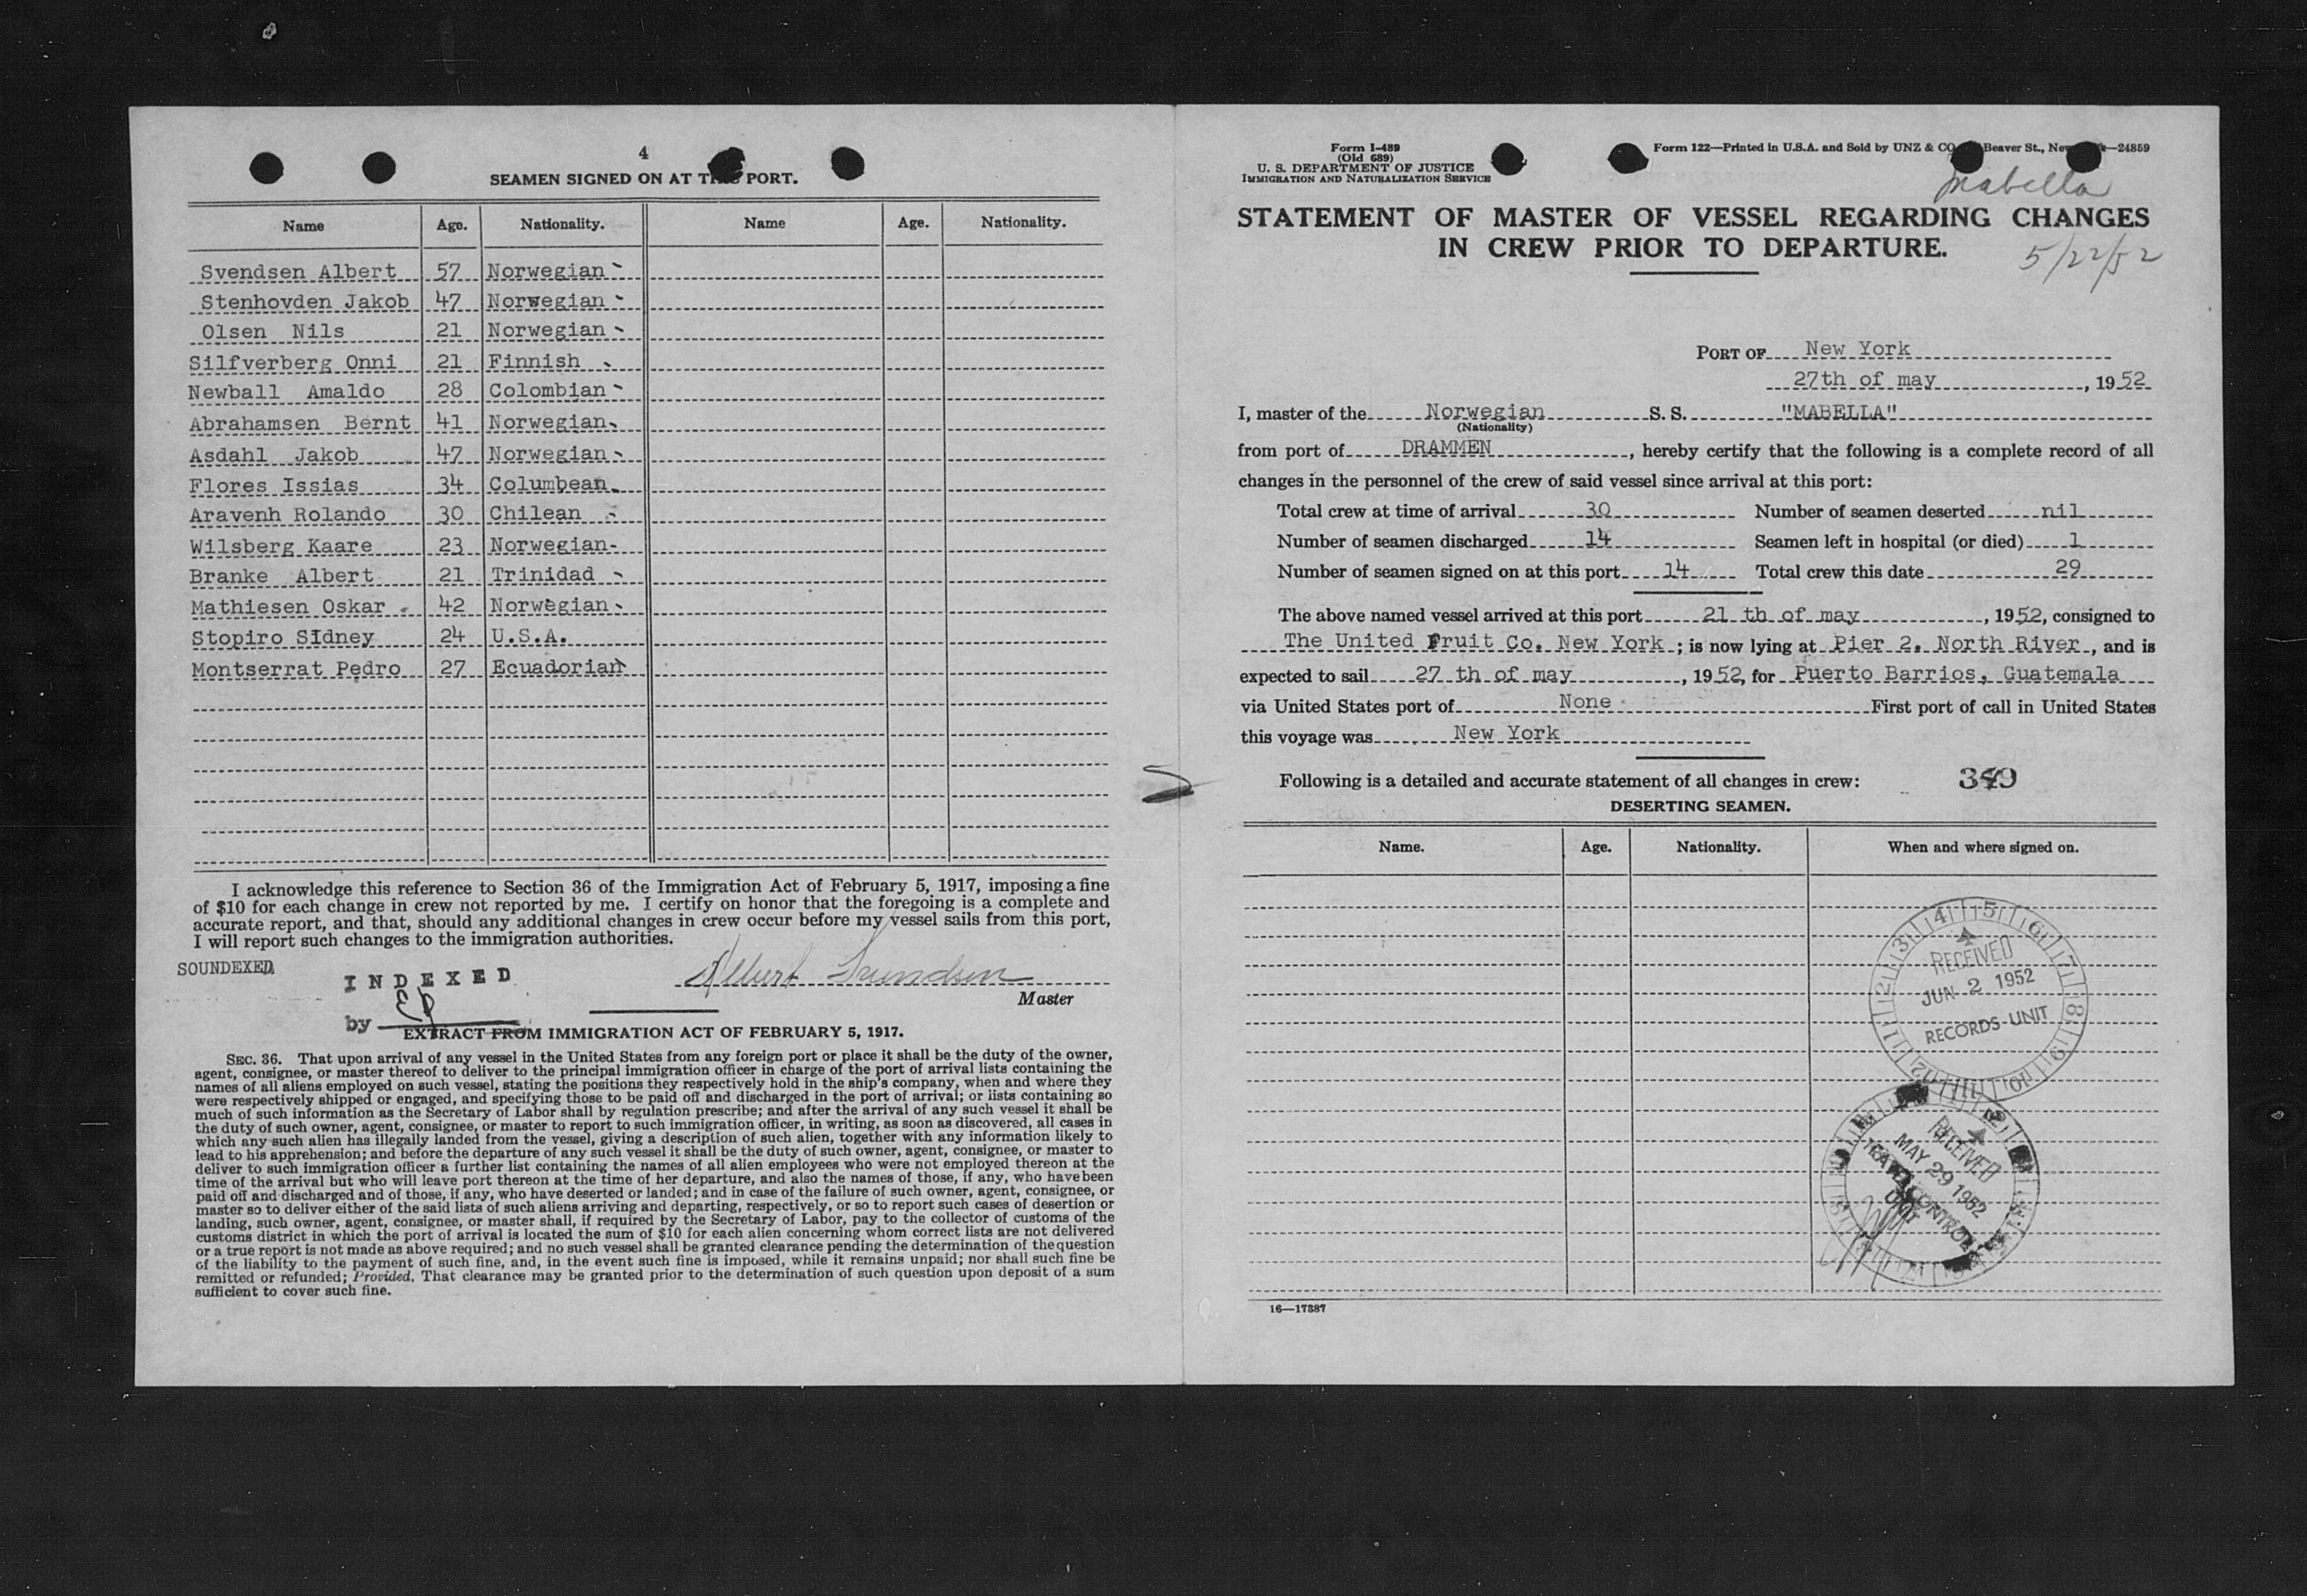 4
SEAMEN SIGNED ON AT THIS PORT.
Name Age. Nationality. Name Age. Nationality.
Svendsen Albert 57 Norwegian
Stenhovden Jakob 47 Norwegian
Olsen Nils 21 Norwegian
Silfverberg Onni 21 Finnish
Newball Amaldo 28 Colombian
Abrahamsen Bernt 41 Norwegian
Asdahl Jakob 47 Norwegian
Flores Issias 34 Columbean
Aravenh Rolando 30 Chilean
Wilsberg Kaare 23 Norwegian
Branke Albert 21 Trinidad
Mathiesen Oskar 42 Norwegian
Stopiro SIdney 24 U.S.A.
Montserrat Pedro 27 Ecuadorian
I acknowledge this reference to Section 36 of the Immigration Act of February 5, 1917, imposing a fine
of $10 for each change in crew not reported by me. I certify on honor that the foregoing is a complete and
accurate report, and that, should any additional changes in crew occur before my vessel sails from this port,
I will report such changes to the immigration authorities.
SOUNDEXED
INDEXED
Albert Svendsen
Master
by
EXTRACT FROM IMMIGRATION ACT OF FEBRUARY 5, 1917.
SEC. 36. That upon arrival of any vessel in the United States from any foreign port or place it shall be the duty of the owner,
agent, consignee, or master thereof to deliver to the principal immigration officer in charge of the port of arrival lists containing the
names of all aliens employed on such vessel, stating the positions they respectively hold in the ship's company, when and where they
were respectively shipped or engaged, and specifying those to be paid off and discharged in the port of arrival; or lists containing so
much of such information as the Secretary of Labor shall by regulation prescribe; and after the arrival of any such vessel it shall be
the duty of such owner, agent, consignee, or master to report to such immigration officer, in writing, as soon as discovered, all cases in
which any such alien has illegally landed from the vessel, giving a description of such alien, together with any information likely to
lead to his apprehension; and before the departure of any such vessel it shall be the duty of such owner, agent, consignee, or master to
deliver to such immigration officer a further list containing the names of all alien employees who were not employed thereon at the
time of the arrival but who will leave port thereon at the time of her departure, and also the names of those, if any, who have been
paid off and discharged and of those, if any, who have deserted or landed; and in case of the failure of such owner, agent, consignee, or
master so to deliver either of the said lists of such aliens arriving and departing, respectively, or so to report such cases of desertion or
landing, such owner, agent, consignee, or master shall, if required by the Secretary of Labor, pay to the collector of customs of the
customs district in which the port of arrival is located the sum of $10 for each alien concerning whom correct lists are not delivered
or a true report is not made as above required; and no such vessel shall be granted clearance pending the determination of the question
of the liability to the payment of such fine, and, in the event such fine is imposed, while it remains unpaid; nor shall such fine be
remitted or refunded; Provided, That clearance may be granted prior to the determination of such question upon deposit of a sum
sufficient to cover such fine.
Form I-489
(Old 689)
U. S. DEPARTMENT OF JUSTICE
IMMIGRATION AND NATURALIZATION SERVICE
Form 122—Printed in U.S.A. and Sold by UNZ & CO Beaver St., New —24859
Mabella
STATEMENT OF MASTER OF VESSEL REGARDING CHANGES
IN CREW PRIOR TO DEPARTURE.
5/22/52
PORT OF New York
27th of may, 1952
I, master of the Norwegian S. S. "MABELLA"
(Nationality)
from port of DRAMMEN, hereby certify that the following is a complete record of all
changes in the personnel of the crew of said vessel since arrival at this port:
Total crew at time of arrival 30 Number of seamen deserted nil
Number of seamen discharged 14 Seamen left in hospital (or died) 1
Number of seamen signed on at this port 14 Total crew this date 29
The above named vessel arrived at this port 21 th of may, 1952, consigned to
The United Fruit Co. New York; is now lying at Pier 2. North River, and is
expected to sail 27 th of may, 1952, for Puerto Barrios, Guatemala
via United States port of None First port of call in United States
this voyage was New York
Following is a detailed and accurate statement of all changes in crew: 349
DESERTING SEAMEN.
Name. Age. Nationality. When and where signed on.
RECEIVED
JUN 2 1952
RECORDS UNIT
RECEIVED
MAY 29 1952
CONTROL
UNIT
16—17387